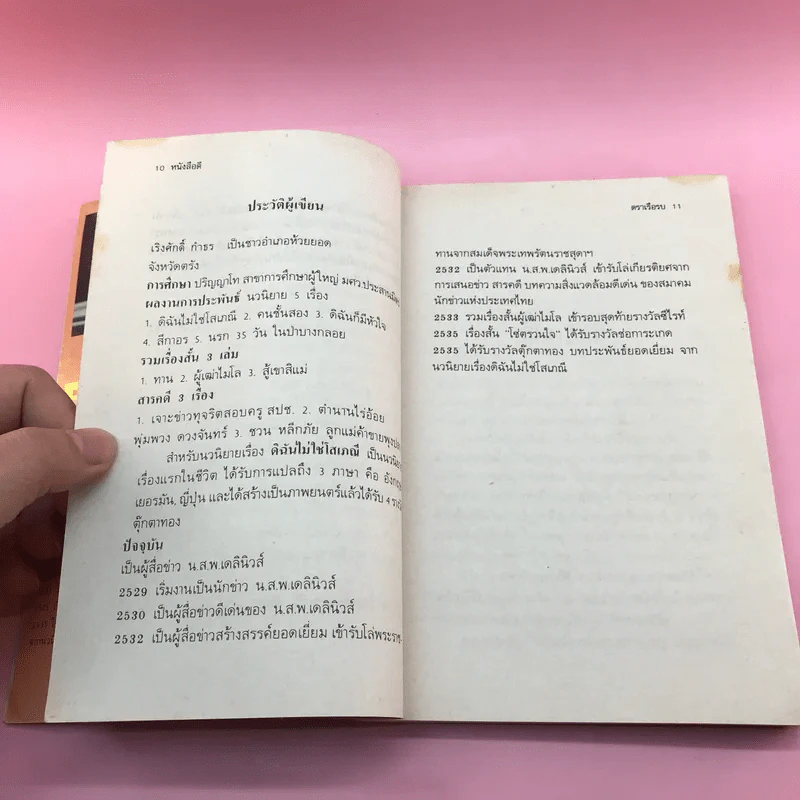 10 หนังสือดี
ประวัติผู้เขียน
เริงศักดิ์ กำธร เป็นชาวอำเภอห้วยยอด
จังหวัดตรัง
การศึกษา ปริญญาโท สาขาการศึกษาผู้ใหญ่ มศว.ประสานมิตร
ผลงานการประพันธ์ นวนิยาย 5 เรื่อง
1. ดิฉันไม่ใช่โสเภณี 2. คนชั้นสอง 3. ดิฉันก็มีหัวใจ
4. สีกาอร 5. นรก 35 วัน ในป่าบางกลอย
รวมเรื่องสั้น 3 เล่ม
1. ทาน 2. ผู้เฒ่าไมโล 3. สู้เขาสิแม่
สารคดี 3 เรื่อง
1. เจาะข่าวทุจริตสอบครู สปช. 2. ตำนานไร่อ้อย
พุ่มพวง ดวงจันทร์ 3. ชวน หลีกภัย ลูกแม่ค้าขายพุงปลา
สำหรับนวนิยายเรื่อง ดิฉันไม่ใช่โสเภณี เป็นนวนิยาย
เรื่องแรกในชีวิต ได้รับการแปลถึง 3 ภาษา คือ อังกฤษ
เยอรมัน, ญี่ปุ่น และได้สร้างเป็นภาพยนตร์แล้วได้รับ 4 รางวัล
ตุ๊กตาทอง
ปัจจุบัน
เป็นผู้สื่อข่าว น.ส.พ.เดลินิวส์
2529 เริ่มงานเป็นนักข่าว น.ส.พ.เดลินิวส์
2530 เป็นผู้สื่อข่าวดีเด่นของ น.ส.พ.เดลินิวส์
2532 เป็นผู้สื่อข่าวสร้างสรรค์ยอดเยี่ยม เข้ารับโล่พระราช-
ตราเรือรบ 11
ทานจากสมเด็จพระเทพรัตนราชสุดาฯ
2532 เป็นตัวแทน น.ส.พ.เดลินิวส์ เข้ารับโล่เกียรติยศจาก
การเสนอข่าว สารคดี บทความสิ่งแวดล้อมดีเด่น ของสมาคม
นักข่าวแห่งประเทศไทย
2533 รวมเรื่องสั้นผู้เฒ่าไมโล เข้ารอบสุดท้ายรางวัลซีไรท์
2535 เรื่องสั้น "โซ่ตรวนใจ" ได้รับรางวัลช่อการะเกด
2535 ได้รับรางวัลตุ๊กตาทอง บทประพันธ์ยอดเยี่ยม จาก
นวนิยายเรื่องดิฉันไม่ใช่โสเภณี